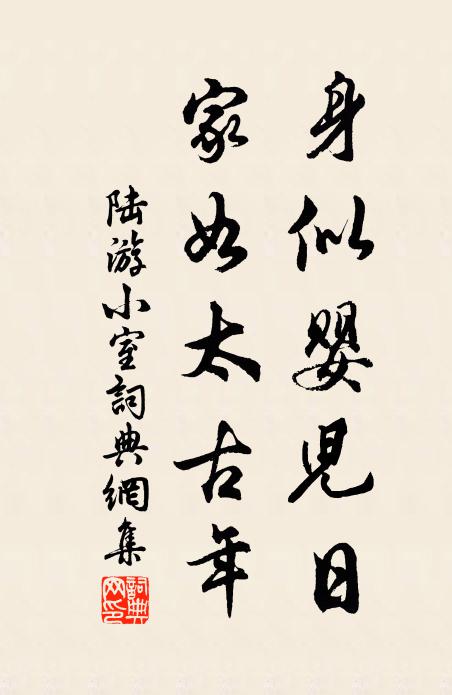 身似嬰兒日
家如太古年
陆游小室詞典網集
詞典网印